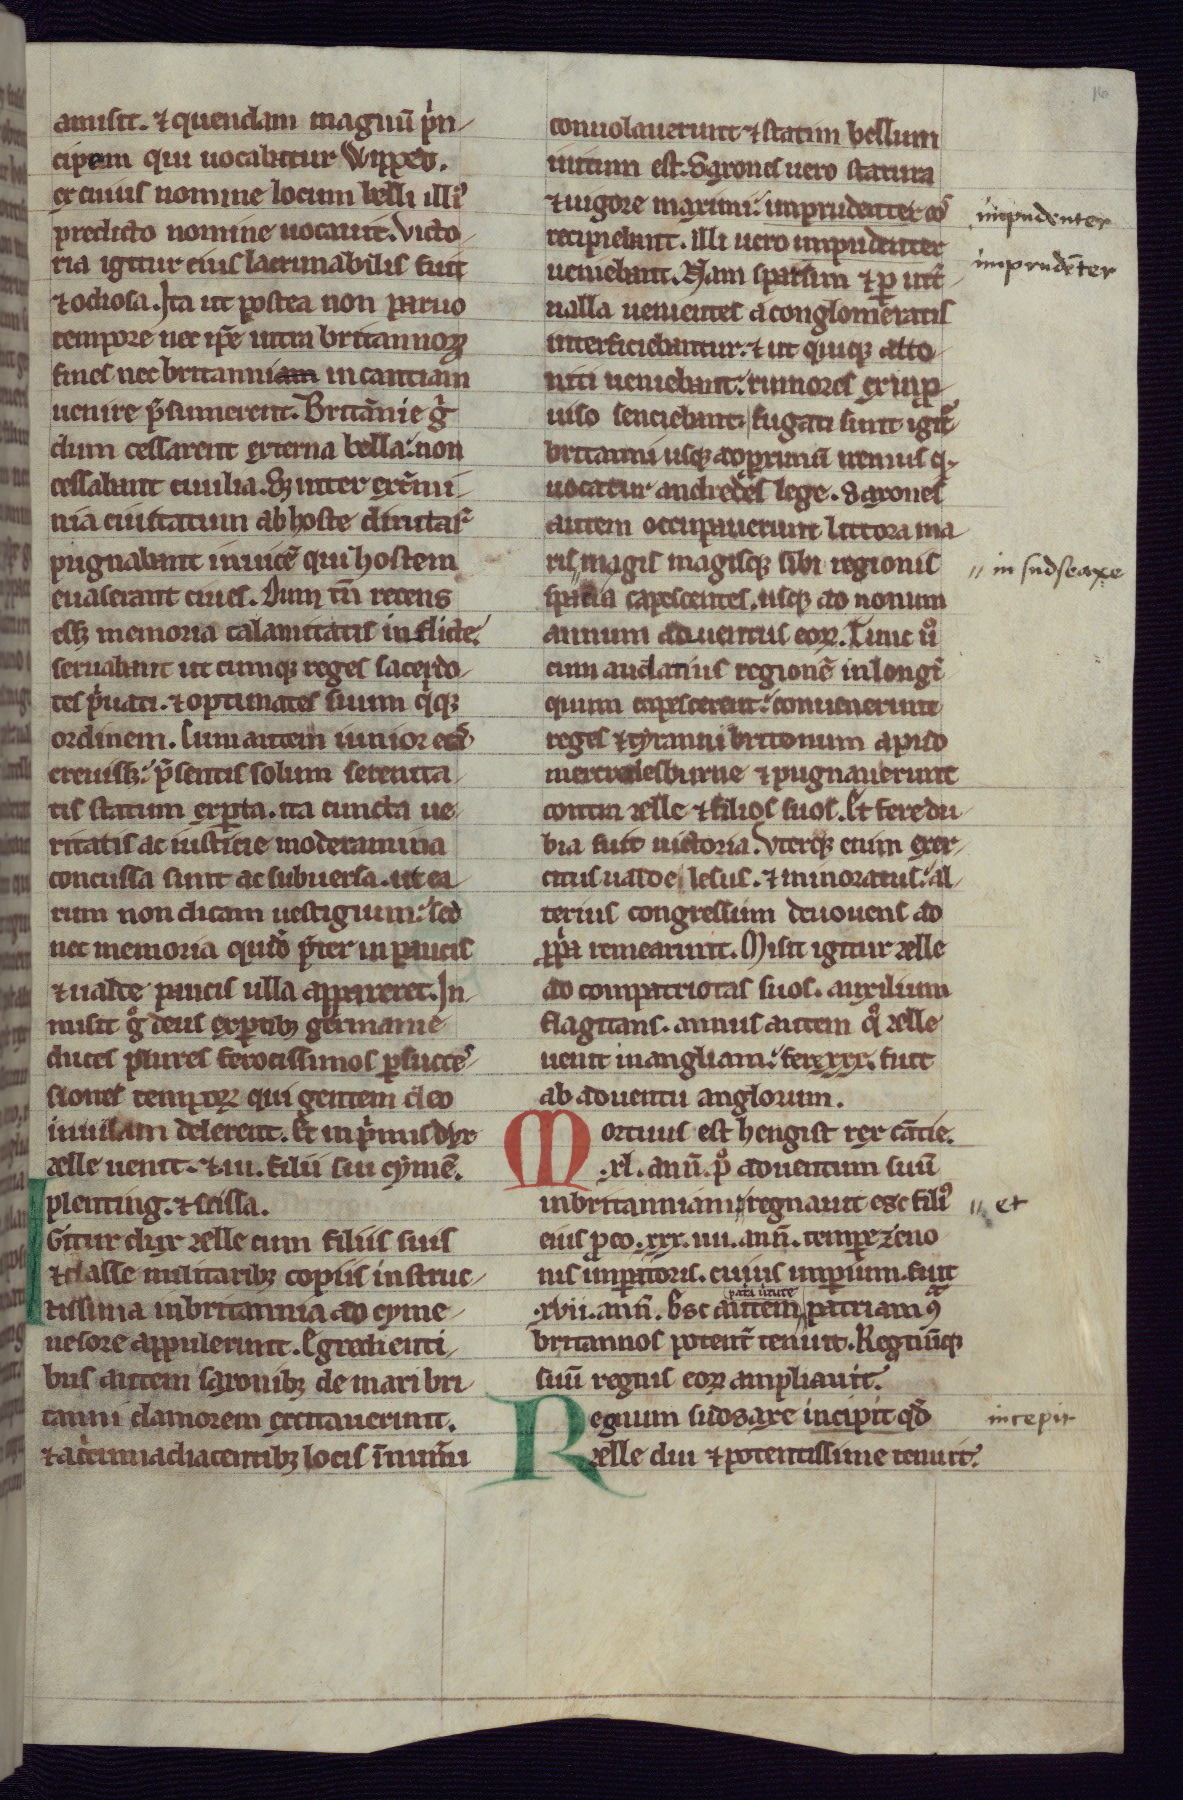 amisit. ⁊ quendam magnū p̄n-
cipem qui uocabatur Wippet.
ex cuius nomine locum belli illiꝰ
predicto nomine uocauit. Victo-
ria igitur eius lacrimabilis fuit
⁊ odiosa. Ita ut postea non paruo
tempore nec ip̄e intra britannoꝝ
fines nec britanni in cantiam
uenire p̄sumerent. Britānie gͦ
dum cessarent externa bella: non
cessabant ciuilia. Sꝫ inter ext̄mi-
nia ciuitatum ab hoste dirutaꝝ
pugnabant inuicē qui hostem
euaserant ciues. Dum tn̄ recens
essꝫ memoria calamitatis inflicte:
seruabant ut cumqꝫ reges sacerdo-
tes p̄uati. ⁊ optimates suum qͥqꝫ
ordinem. Cum autem iunior etas
creuissꝫ: p̄sentis solum serenita-
tis statum exꝑta. ita cuncta ue-
ritatis ac iusticie moderamina
concussa sunt ac subuersa. ut ea-
rum non dicam uestigium: sed
nec memoria quidē p̄ter in paucis
⁊ ualde paucis ulla appareret. In-
misit gͦ deus exꝑtibꝫ germanie
duces plures ferocissimos ꝑ succes-
siones tempoꝝ qui gentem deo
inuisam delerent. Et in p̄mis dux
ælle uenit. ⁊ .iii. filii sui cymē.
plenting. ⁊ scissa.
IGitur dux ælle cum filiis suis
⁊ classe militaribꝫ copiis instruc-
tissima in britannia ad cyme-
nesore appulerunt. Egredienti-
bus autem saxonibꝫ de mari bri-
tanni clamorem excitauerunt.
⁊ a circumadiacentibꝫ locis īnum̄i
conuolauerunt ⁊ statim bellum
initum est. Saxones uero statura
⁊ uigore maximi: imprudenter eos
recipiebant. illi uero imprudenter
ueniebant. Nam sparsim ⁊ ꝑ int̄-
ualla uenientes a conglomeratis
interficiebantur: ⁊ ut quiqꝫ atto-
niti ueniebant: rumores ex inp-
uiso senciebant. fugati sunt igit̄
britanni usqꝫ ad ꝓximū nemus q-
uocatur andredes lege. Saxones
autem occupauerunt littora ma-
ris,, magis magisqꝫ sibi regionis
spatia capescentes, usqꝫ ad nonum
annum aduentus eoꝝ. Tunc uͦ
cum audatius regionē in longī-
quum capescerent: conuenerunt
reges ⁊ tyranni britonum apud
mercredesburne ⁊ pugnauerunt
contra ælle ⁊ filios suos. Et fere du-
bia fuit uictoria. Vterqꝫ enim exer-
citus ualde lesus. ⁊ minoratus: al-
terius congressum deuouens ad
ꝓpͥa remearunt. Misit igitur ælle
ad compatriotas suos. auxilium
flagitans. annus autem qͦ ælle
uenit in angliam: fere xxx. fuit
ab aduentu anglorum.
Mortuus est hengist rex cātie.
.xl. anū. pͦ aduentum suū
in britanniam,, regnauit esc filiꝰ
eius ꝑ eo. xxx. iiii. ann̄. tempr̄ zeno-
nis imꝑatoris. cuius imꝑium fuit
.xvii. ann̄. Esc autem,, patriam ꝯͣ
patͥa uirtute
britannos potent̄ tenuit. Regnūqꝫ
suū regnis eoꝝ ampliauit.
Regnum sudsaxe incipit qd̄
ælle diu ⁊ potentissime tenuit.
imp̄udenter
imprudēter
,, in sudseaxe
,, et
incepit
16